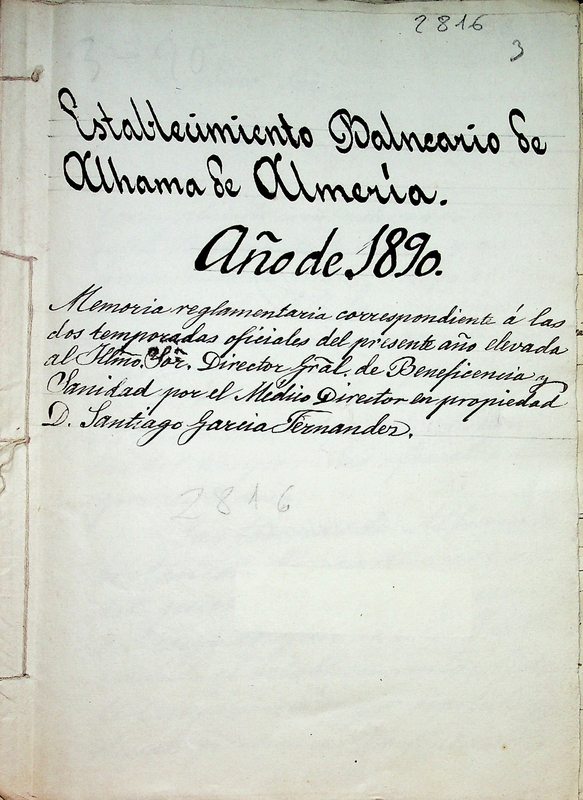 2816
3
Establecimiento Balneario de
Alhama de Almería.
Año de 1890.
Memoria reglamentaria correspondiente á las
dos temporadas oficiales del presente año elevada
al Illmo. Sõr. Director Gral. de Beneficencia y
Sanidad por el Medico Director en propiedad
D. Santiago Garcia Fernandez.
2816